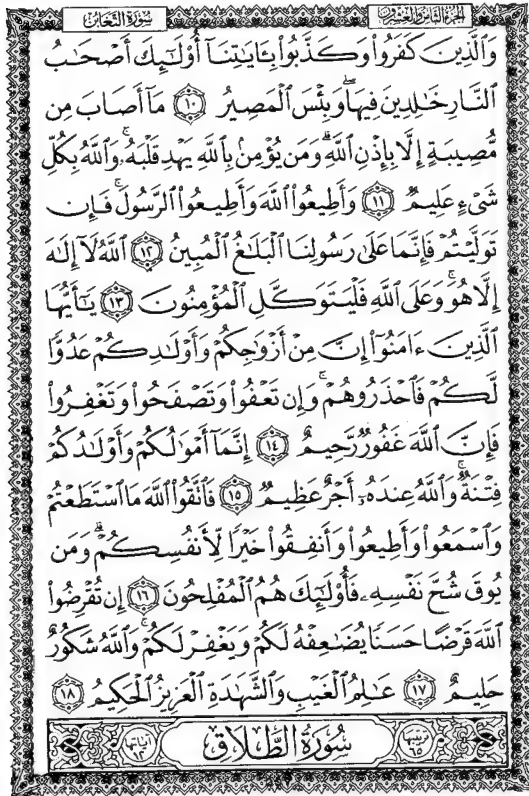 سورة التغابن
الجزء الثامن والعشرون
وَالَّذِينَ كَفَرُوا۟ وَكَذَّبُوا۟ بِـَٔايَـٰتِنَآ أُو۟لَـٰٓئِكَ أَصْحَـٰبُ
ٱلنَّارِ خَـٰلِدِينَ فِيهَا ۖ وَبِئْسَ ٱلْمَصِيرُ ١٠ مَآ أَصَابَ مِن
مُّصِيبَةٍ إِلَّا بِإِذْنِ ٱللَّهِ ۗ وَمَن يُؤْمِنۢ بِٱللَّهِ يَهْدِ قَلْبَهُۥ ۚ وَٱللَّهُ بِكُلِّ
شَىْءٍ عَلِيمٌ ١١ وَأَطِيعُوا۟ ٱللَّهَ وَأَطِيعُوا۟ ٱلرَّسُولَ ۚ فَإِن
تَوَلَّيْتُمْ فَإِنَّمَا عَلَىٰ رَسُولِنَا ٱلْبَلَـٰغُ ٱلْمُبِينُ ١٢ ٱللَّهُ لَآ إِلَـٰهَ
إِلَّا هُوَ ۚ وَعَلَى ٱللَّهِ فَلْيَتَوَكَّلِ ٱلْمُؤْمِنُونَ ١٣ يَـٰٓأَيُّهَا
ٱلَّذِينَ ءَامَنُوٓا۟ إِنَّ مِنْ أَزْوَٰجِكُمْ وَأَوْلَـٰدِكُمْ عَدُوًّا
لَّكُمْ فَٱحْذَرُوهُمْ ۚ وَإِن تَعْفُوا۟ وَتَصْفَحُوا۟ وَتَغْفِرُوا۟
فَإِنَّ ٱللَّهَ غَفُورٌ رَّحِيمٌ ١٤ إِنَّمَآ أَمْوَٰلُكُمْ وَأَوْلَـٰدُكُمْ
فِتْنَةٌ ۚ وَٱللَّهُ عِندَهُۥٓ أَجْرٌ عَظِيمٌ ١٥ فَٱتَّقُوا۟ ٱللَّهَ مَا ٱسْتَطَعْتُمْ
وَٱسْمَعُوا۟ وَأَطِيعُوا۟ وَأَنفِقُوا۟ خَيْرًا لِّأَنفُسِكُمْ ۗ وَمَن
يُوقَ شُحَّ نَفْسِهِۦ فَأُو۟لَـٰٓئِكَ هُمُ ٱلْمُفْلِحُونَ ١٦ إِن تُقْرِضُوا۟
ٱللَّهَ قَرْضًا حَسَنًا يُضَـٰعِفْهُ لَكُمْ وَيَغْفِرْ لَكُمْ ۚ وَٱللَّهُ شَكُورٌ
حَلِيمٌ ١٧ عَـٰلِمُ ٱلْغَيْبِ وَٱلشَّهَـٰدَةِ ٱلْعَزِيزُ ٱلْحَكِيمُ ١٨
ترتيبها ٦٥ سُورَةُ الطَّلَاقِ آياتها ١٢